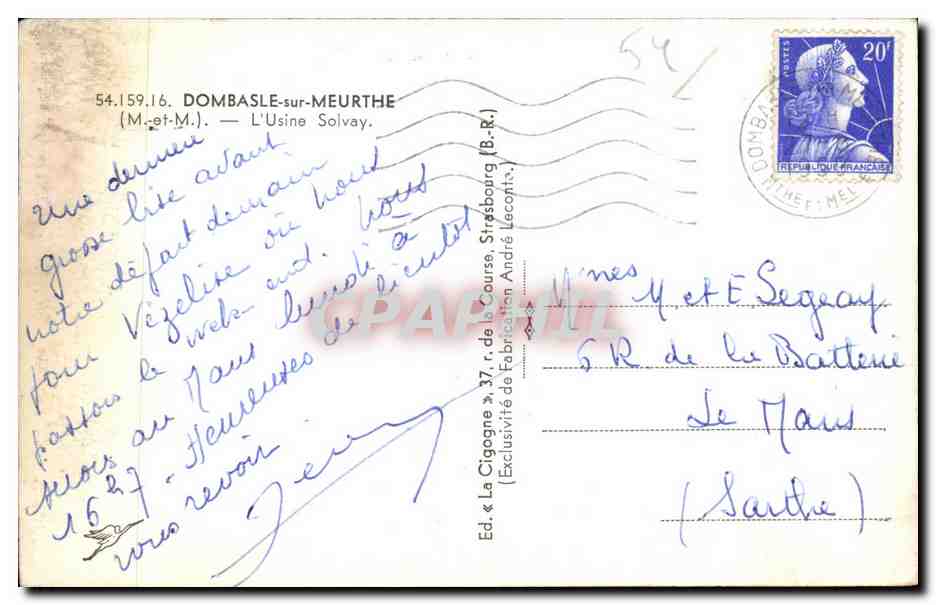 54.159.16. DOMBASLE-sur-MEURTHE
(M.-et-M.). — L'Usine Solvay.
Une dernière
grosse bise avant
notre départ demain
pour Vézelise où nous
passons le week-end. Nous
allons au Mans lundi à
16h 7 - Heureuses de bientôt
vous revoir
Ed. « La Cigogne », 37, r. de la Course, Strasbourg (B.-R.)
(Exclusivité de Fabrication André Leconte.)
54
POSTES
20F
REPUBLIQUE FRANCAISE
DOMBA
MTHE ET MEL
Mmes M. et E Segeay
5 R. de la Batterie
Le Mans
(Sarthe)
CPAPHIL